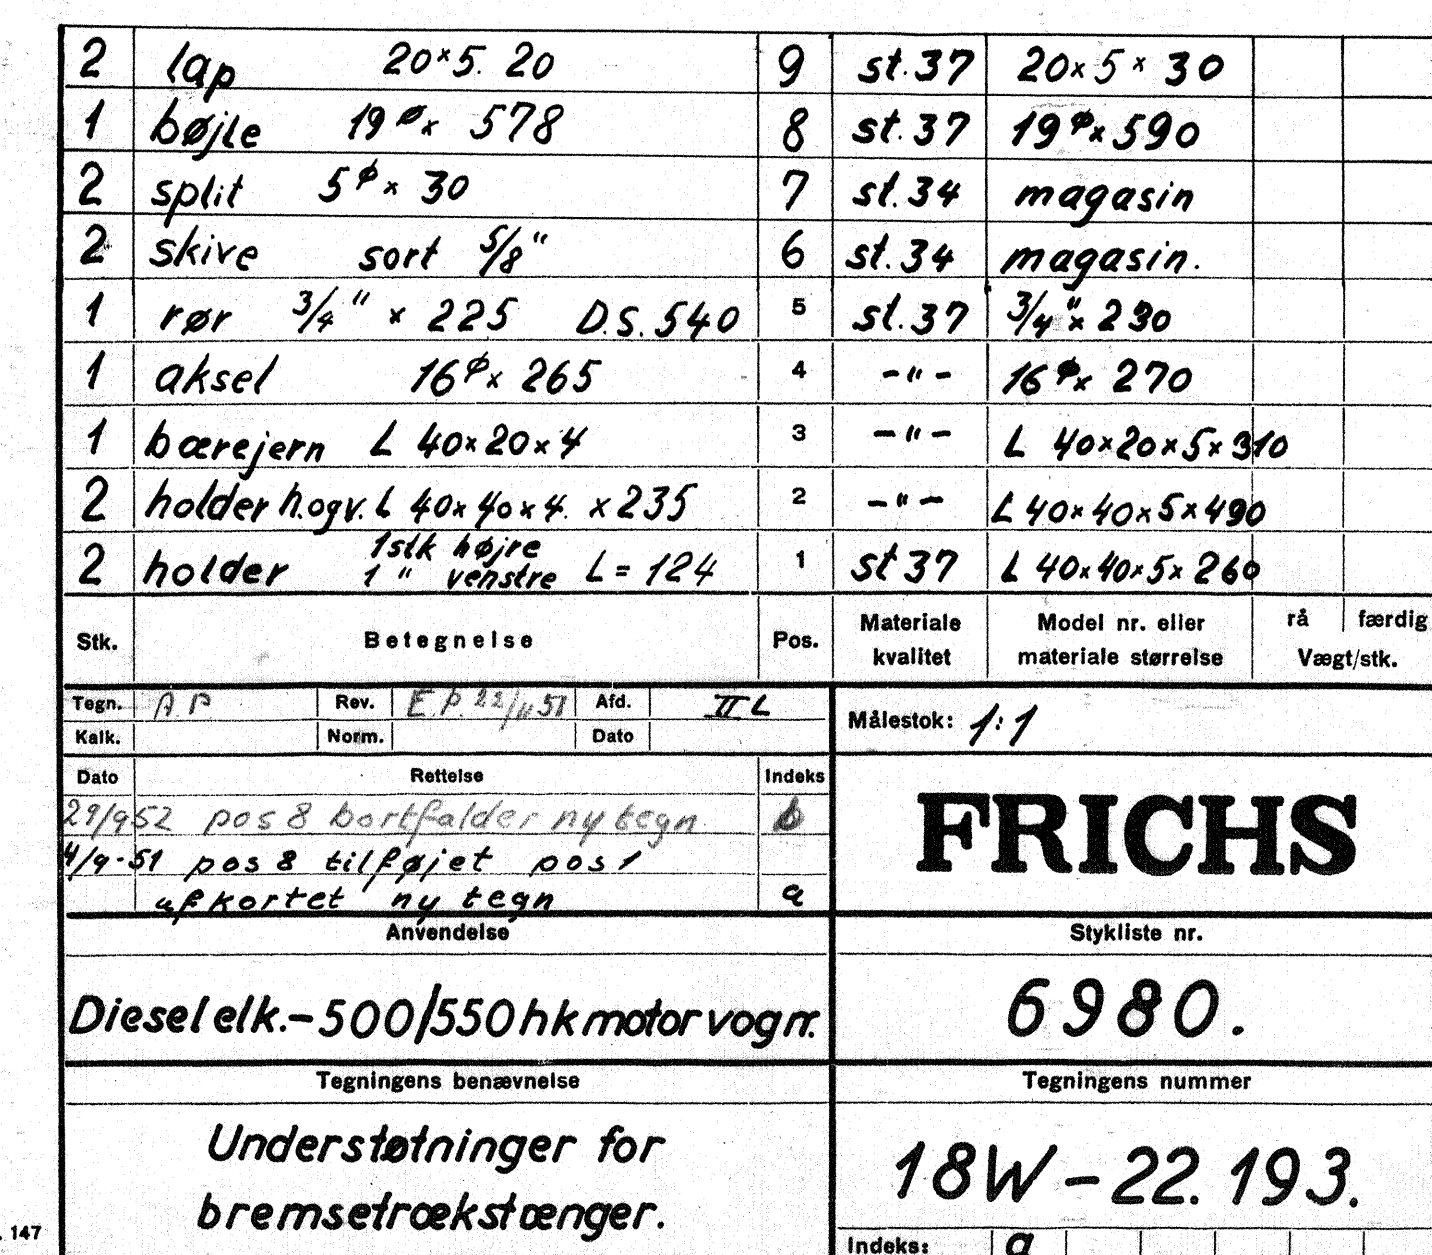 2 lap 20×5. 20 9 st.37 20×5×30
1 bøjle 19ø× 578 8 st.37 19ø×590
2 split 5ø× 30 7 st.34 magasin
2 skive sort 5/8" 6 st.34 magasin.
1 rør 3/4" × 225 D.S. 540 5 st.37 3/4"× 230
1 aksel 16ø× 265 4 -"- 16ø× 270
1 bærejern L 40×20×4 3 -"- L 40×20×5×310
2 holder h.ogv. L 40×40×4. ×235 2 -"- L 40×40×5×490
2 holder 1stk højre 1 " venstre L= 124 1 st 37 L 40×40×5×260
Stk. Betegnelse Pos. Materiale kvalitet Model nr. eller materiale størrelse rå færdig Vægt/stk.
Tegn. A P Rev. E.P. 22/11 51 Afd. II L
Kalk. Norm. Dato
Målestok: 1:1
Dato Rettelse Indeks
29/9 52 pos 8 bortfalder ny tegn b
4/9-51 pos 8 tilføjet pos 1
afkortet ny tegn a
FRICHS
Anvendelse
Diesel elk.-500/550 hk motor vogn.
Stykliste nr.
6980.
Tegningens benævnelse
Understøtninger for
bremsetrækstænger.
Tegningens nummer
18W-22.193.
147
Indeks: a